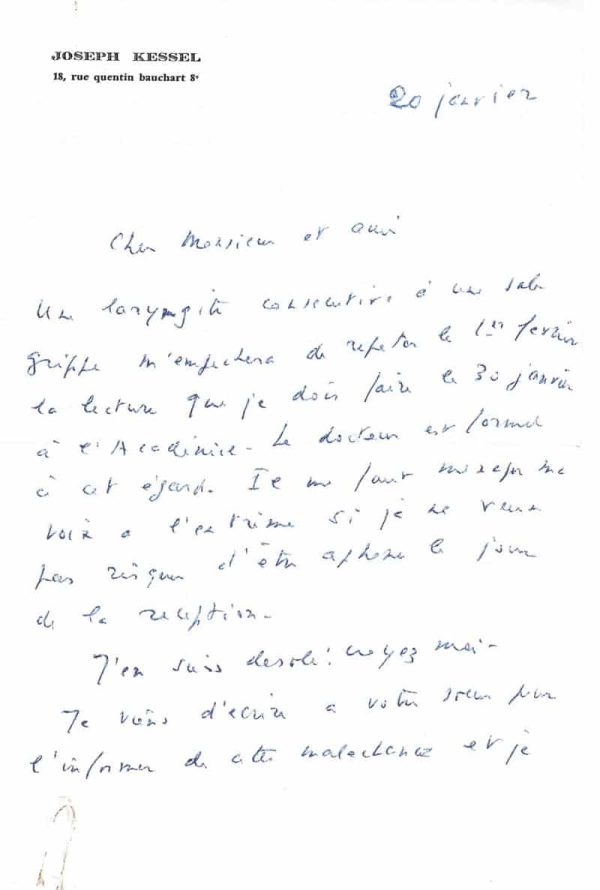 JOSEPH KESSEL
18, rue quentin bauchart 8e
20 janvier
Cher Monsieur et ami
Une laryngite consecutive à une sale
grippe m'empechera de repeter le 1er fevrier
la lecture que je dois faire le 30 janvier
à l'Académie - Le docteur est formel
à cet égard. Il me faut menager ma
voix à l'extrème si je ne veux
pas risquer d'être aphone le jour
de la reception -
J'en suis desolé : croyez moi -
Je viens d'ecrire a votre soeur pour
l'informer de cette malechance et je